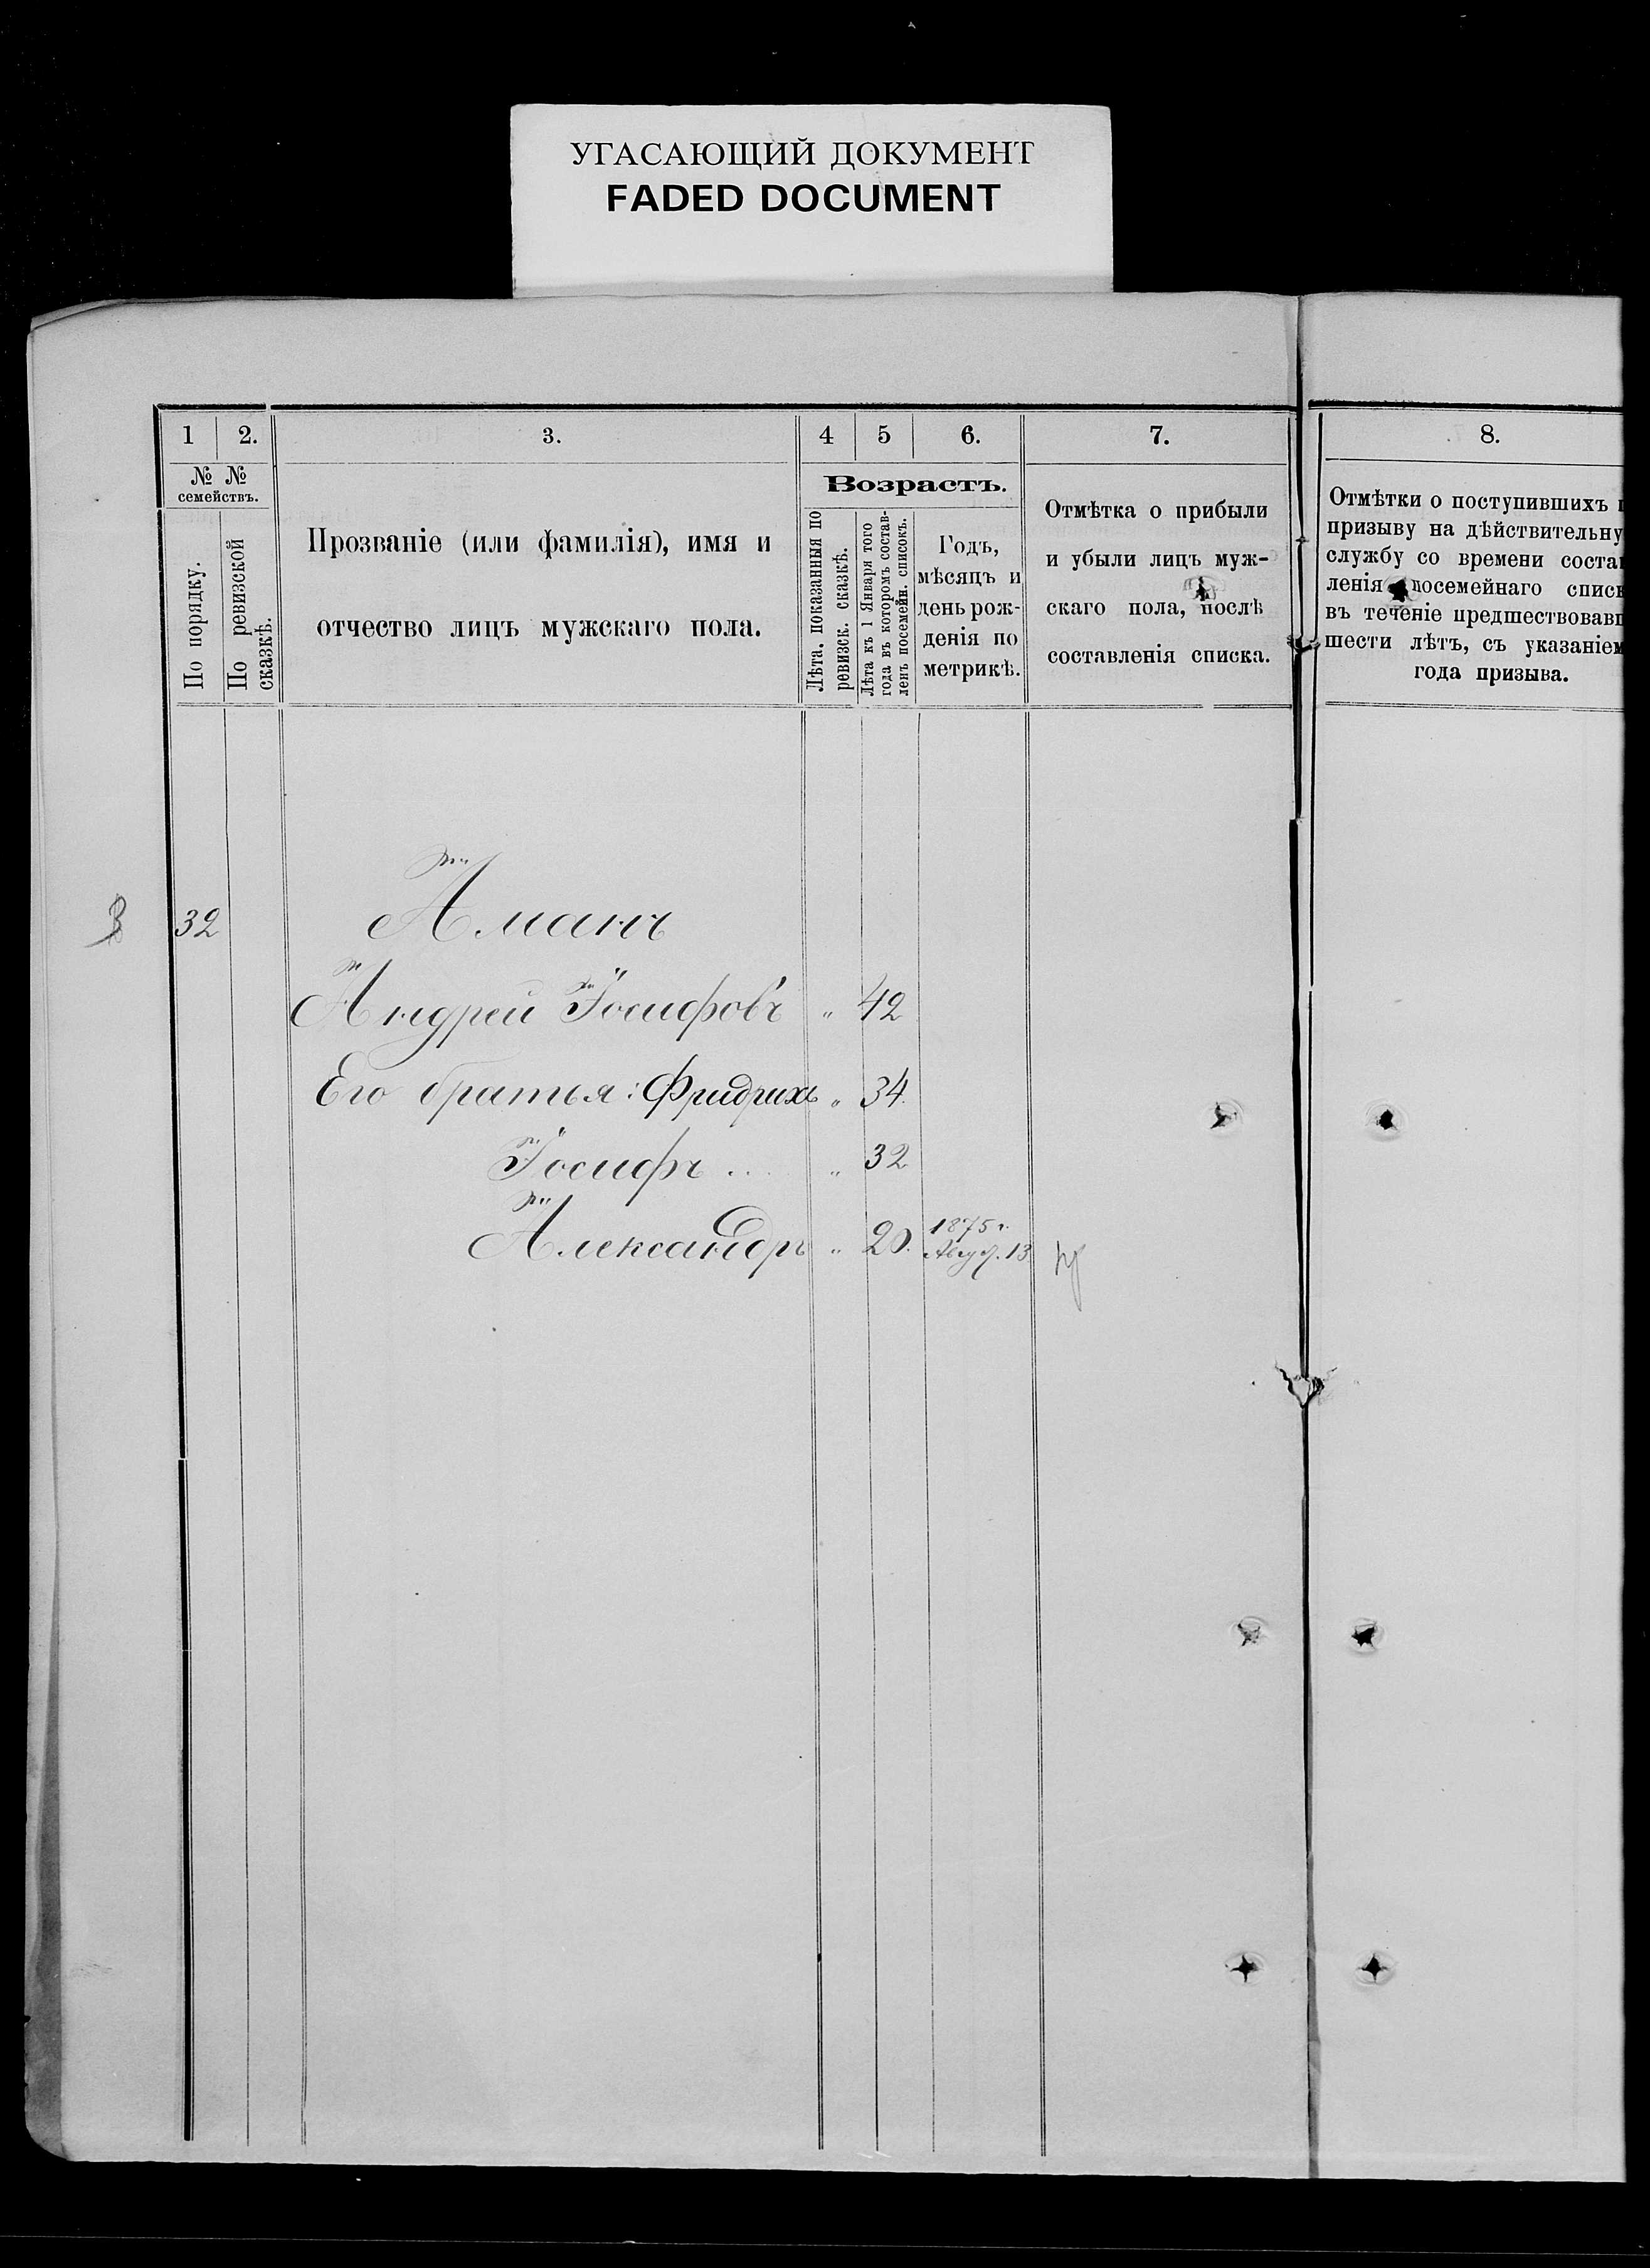 УГАСАЮЩИЙ ДОКУМЕНТ
FADED DOCUMENT
1
2.
3.
4
5
6.
7.
8.
№ №
семействъ.
По порядку.
По ревизской
сказкѣ.
Прозваніе (или фамилія), имя и
отчество лицъ мужскаго пола.
Возрастъ.
Лѣта, показанныя по
ревизск. сказкѣ.
Лѣта къ 1 Января того
года въ которомъ состав-
ленъ посемейн. списокъ.
Годъ,
мѣсяцъ и
день рож-
денія по
метрикѣ.
Отмѣтка о прибыли
и убыли лицъ муж-
скаго пола, послѣ
составленія списка.
Отмѣтки о поступившихъ п
призыву на дѣйствительну
службу со времени состав
ленія посемейнаго списк
въ теченіе предшествовавш
шести лѣтъ, съ указаніем
года призыва.
32
Аманъ
Андрей Іосифовъ „ 42
Его братья: Фридрихъ „ 34.
Іосифъ .... „ 32
Александръ „ 20. 1875 г.
Авгус. 13